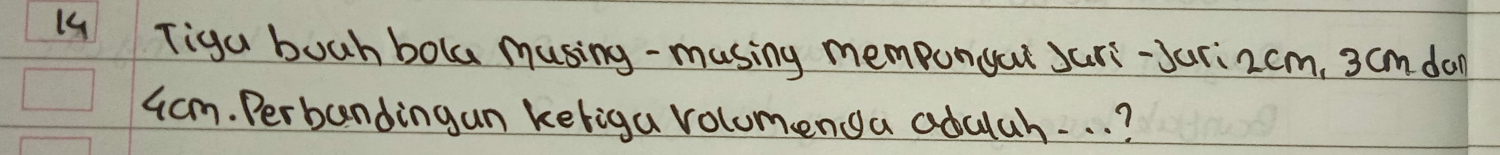 14 Tiga buah bola masing-masing mempunyai Jari-Jari 2cm, 3cm dan
4cm. Perbandingan ketiga volumenya adalah...?